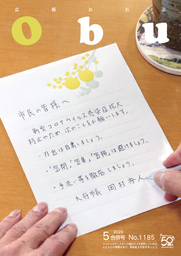 広報おおぶ
Obu
市民の皆様へ
新型コロナウイルス感染症拡大
防止のため、次のことをお願いします。
・外出は自粛しましょう。
・"密閉" "密集" "密接"は避けましょう。
・手洗い等を徹底しましょう。
大府市長 岡村 秀人
5合併号
2020
No.1185
50